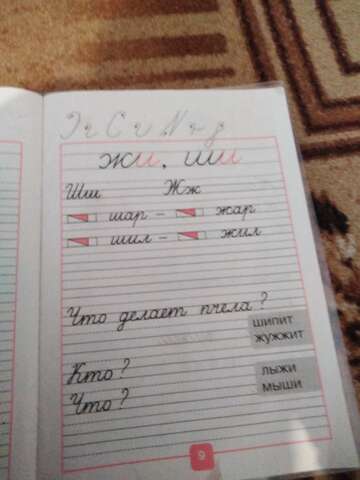 жи, ши
Шш Жж
шар - жар
шил - жил
Что делает пчела?
шипит
жужжит
Кто?
лыжи
Что?
мыши
9